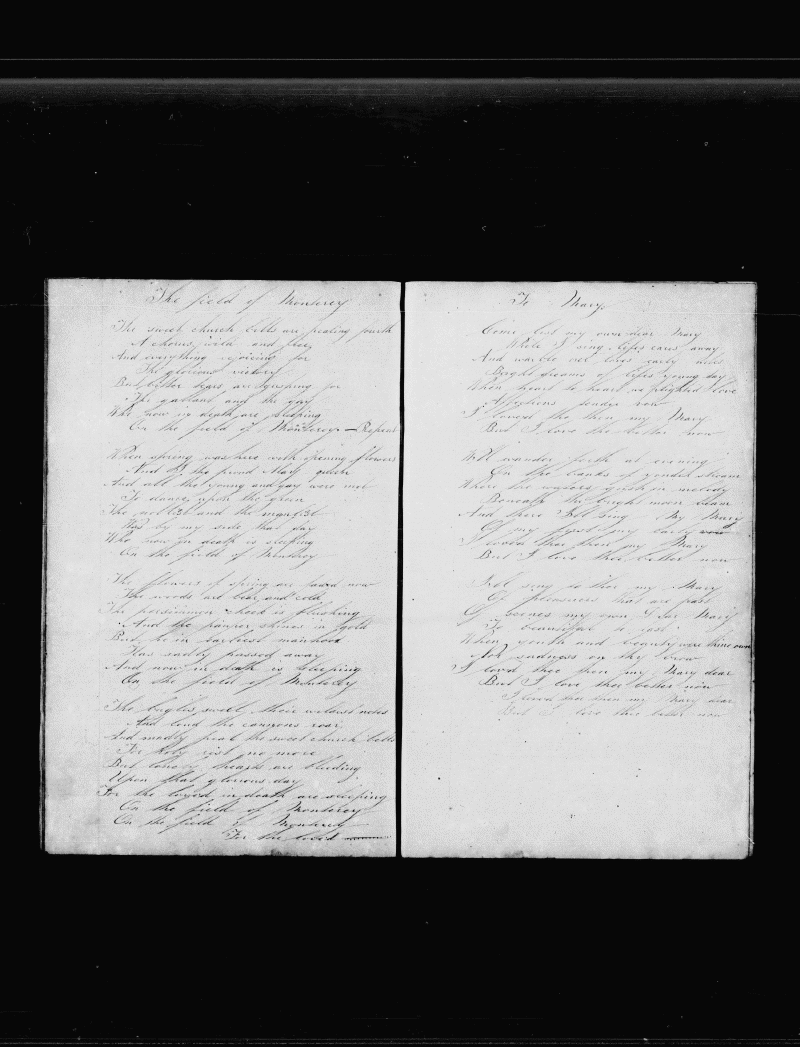 The field of Monterey
The sweet church bells are pealing fourth
A chorus wild and free
And everything rejoicing for
The glorious victory
But bitter tears are gushing for
The gallant and the gay
Who now in death are sleeping
On the field of Monterey — Repeat
When spring was here with opening flowers
And I the proud May queen
And all the young and gay were met
To dance upon the green
The noblest and the manliest
Was by my side that day
Who now in death is sleeping
On the field of Monterey
The flowers of spring are faded now
The woods are bear and cold
The persimmon cheek is flushing
And the pawpaw shines in gold
But he in earliest manhood
Has sadly passed away
And now in death is sleeping
On the field of Monterey
The bugles swell their wildest notes
And loud the cannons roar
And madly peal the sweet church bells
For they rest no more
But lonely hearts are bleeding
Upon that glorious day
For the loved in death are sleeping
On the field of Monterey
On the field of Monterey
For the loved
To Mary
Come list my own dear Mary
While I sing lifes cares away
And warble old lines early
Bright dreams of lifes young day
When heart to heart we plighted love
Affections
I loved the then my Mary
But I love the better now
Well wander forth at evening
On the banks of yonder stream
Where the waters gush in melody
Beneath the bright moon beam
And there Ill sing My Mary
Of my first my early
I loved thee then my Mary
But I love thee better now
Ill sing to thee my Mary
Of pleasures that are past
Of scenes my own Dear Mary
To beautiful to last
When youth and beauty were thine own
Nor sadness on thy brow
I loved thee then my Mary dear
But I love thee better now
I loved thee then my Mary dear
But I love thee better now